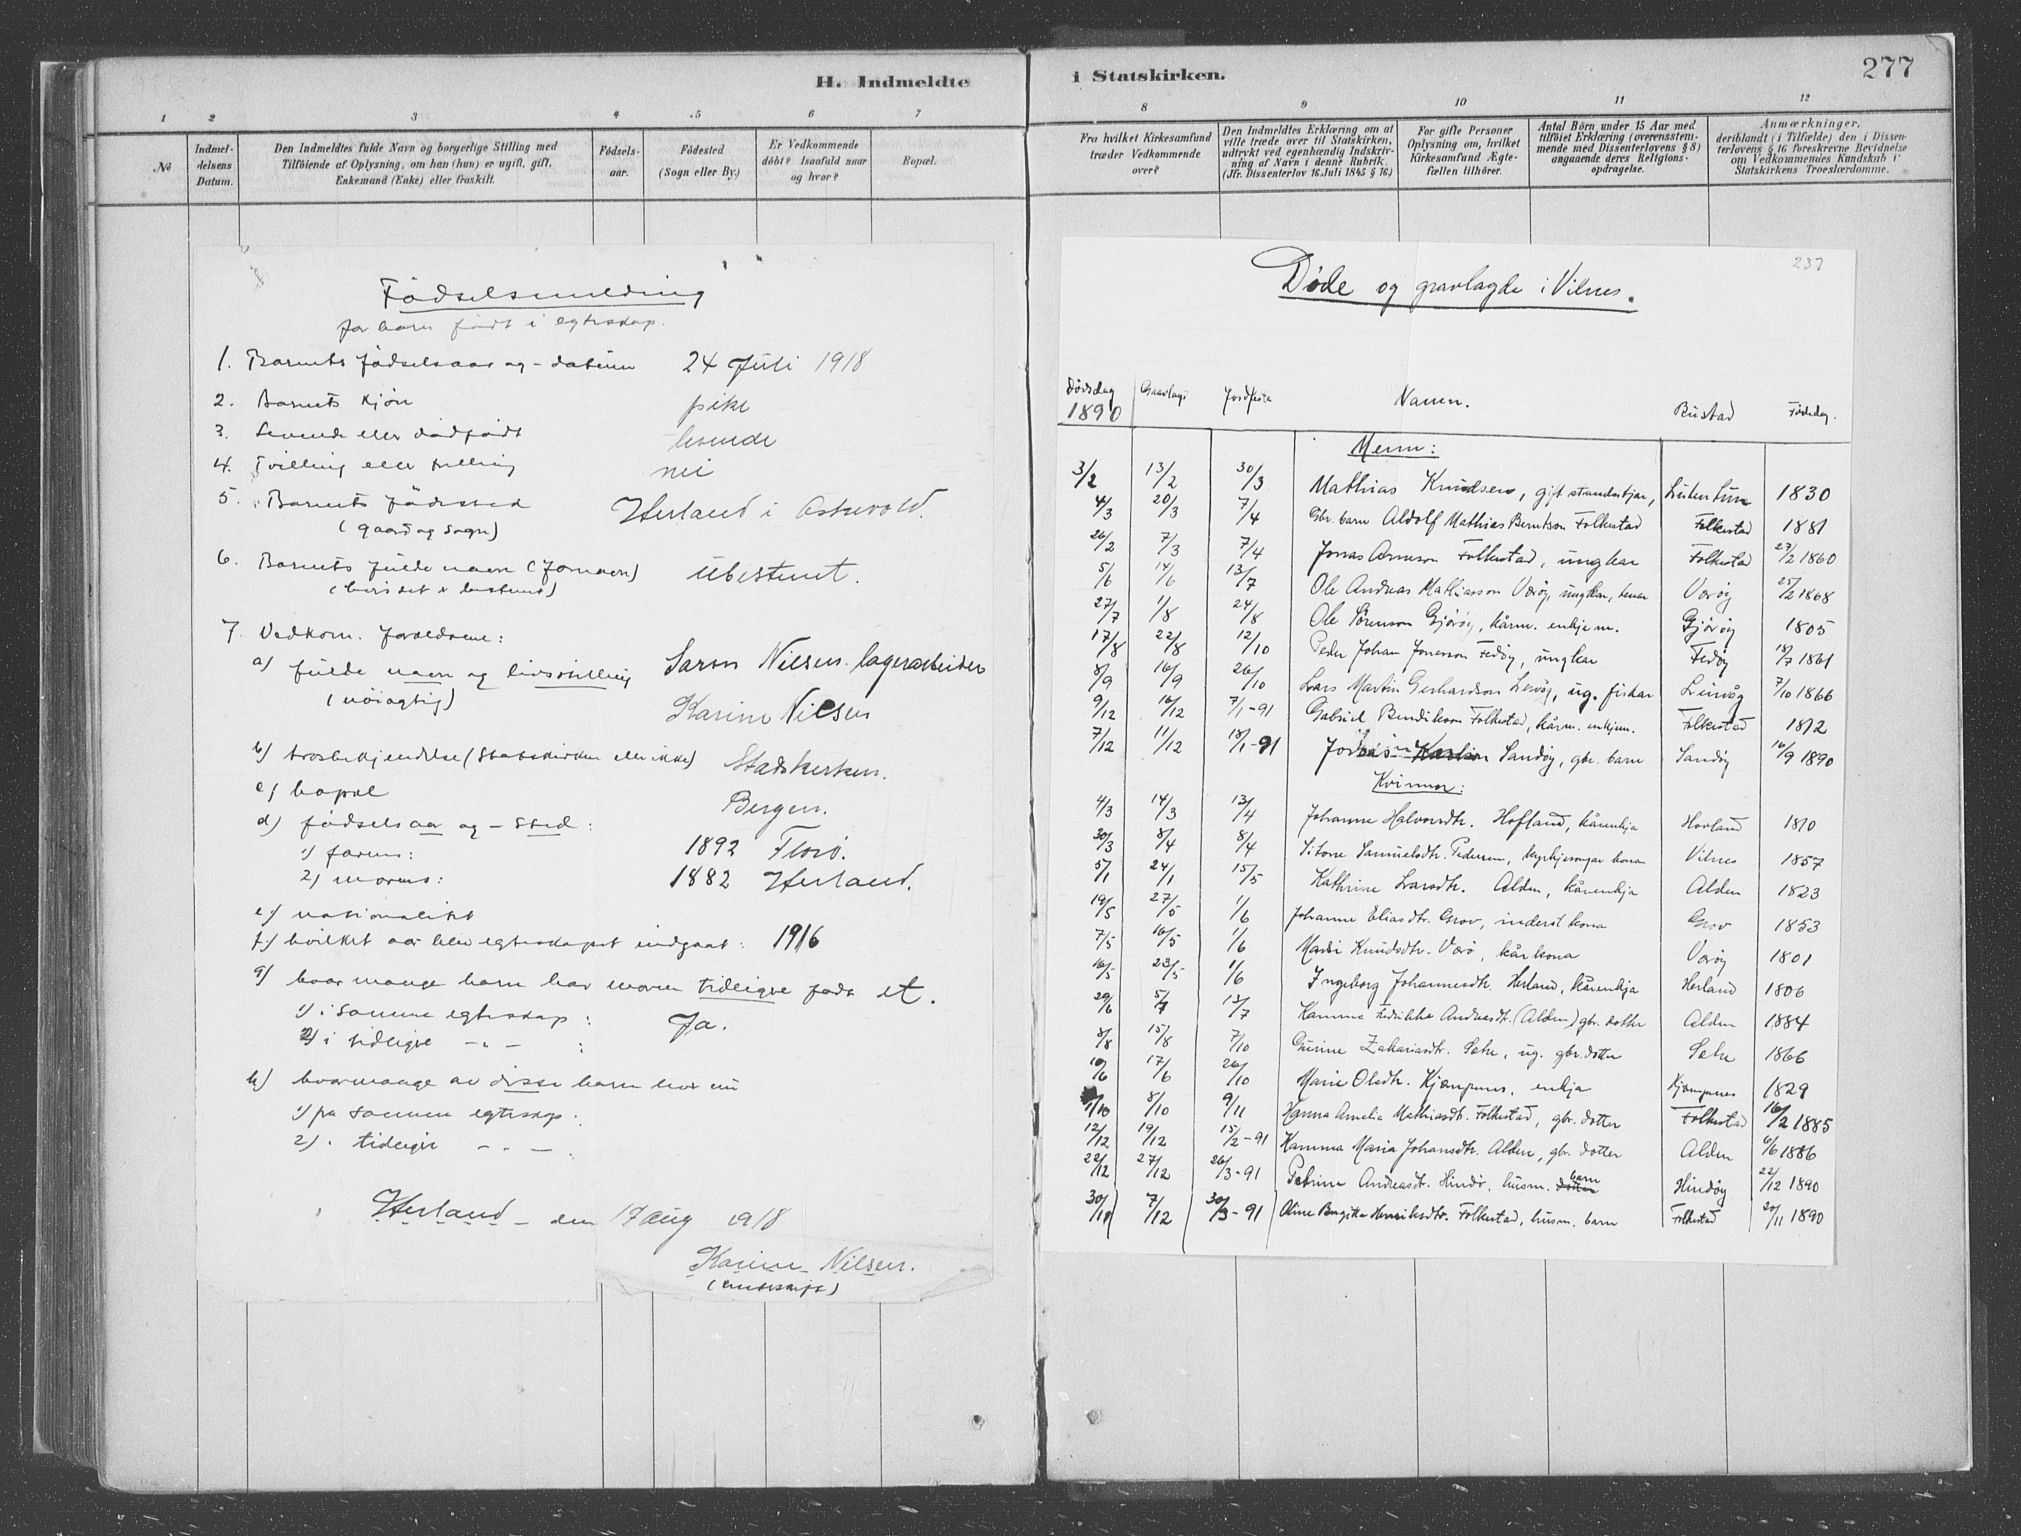 H. Indmeldte
1 2 3 4 5 6 7
No
Indmel-
delsens
Datum.
Den Indmeldtes fulde Navn og borgerlige Stilling med
Tilföiende af Oplysning, om han (hun) er ugift, gift,
Enkemand (Enke) eller fraskilt.
Födsels-
aar.
Födested
(Sogn eller By.)
Er Vedkommende
döbt? Isaafald naar
og hvor?
Bopæl.
Fødselsmelding
for barn født i egteskap.
1. Barnets fødselsaar og - datum 24 Juli 1918
2. Barnets kjøn pike
3. Levende eller dødfødt levende
4. Tvilling eller trilling nei
5. Barnets fødested Herland i Askevold.
(gaard og sogn)
6. Barnets fulde navn (fornavn) Ubestemt.
(hvis det er bestemt)
7. Vedkom. foreldrene:
a) fulde navn og livsstilling Saron Nilsen. lagerarbeider
(nøiagtig) Karine Nilsen
b) trosbekjendelse (Statskirken eller ikke) Statskirken.
c) bopæl Bergen.
d) fødselsaar og - sted:
1) farens: 1892 Florø.
2) morens: 1882 Herland.
e) nationalitet
f) hvilket aar blev egteskapet indgaat: 1916
g) hvor mange barn har moren tidligere født et.
1) i samme egteskap: Ja.
2) i tidligere - " - :
h) hvormange av disse barn lever nu
1) fra samme egteskap:
2) " tidligere - " - .
Herland - den 17 aug 1918
Karine Nilsen.
(underskrift)
i Statskirken. 277
8 9 10 11 12
Fra hvilket Kirkesamfund
træder Vedkommende
over?
Den Indmeldtes Erklæring om at
ville træde over til Statskirken,
udtrykt ved egenhændig Indskriv-
ning af Navn i denne Rubrik.
(Jfr. Dissenterlov 16 Juli 1845 § 16)
For gifte Personer
Oplysning om, hvilket
Kirkesamfund Ægte-
fællen tilhörer.
Antal Börn under 15 Aar med
tilföiet Erklæring (overensstem-
mende med Dissenterlovens § 8)
angaaende deres Religions-
opdragelse.
Anmærkninger,
deriblandt (i Tilfælde) den i Dissen-
terlovens § 16 foreskrevne Bevidnelse
om Vedkommendes Kundskab i
Statskirkens Troeslærdomme.
237
Døde og gravlagde i Vilnes.
Dørsdag Gravlagt Jordfesta Namn. Bustad Fødedag.
1890
Menn:
3/2 13/2 30/3 Mathias Knudsen, gift strandsitjar, 1830
4/3 20/3 7/4 Gbr. barn Aldolf Mathias Berntson Folkestad Folkestad 1881
26/2 7/3 7/4 Jonas Arneson Folkestad, ungkar Folkestad 27/2 1860
5/6 14/6 13/7 Ole Andreas Mathiasson Værøy, ungkar, tenar Værøy 25/2 1868
27/7 1/8 24/8 Ole Sørenson Gjørøy, kårm. enkjem. Gjørøy 1805
17/8 22/8 12/10 Peder Johan Jonasson Fedøy, ungkar Fedøy 18/7 1861
8/9 16/9 26/10 Lars Martin Gerhardson Lervåg, ug. fiskar Leirvåg 7/10 1866
9/12 16/12 7/1-91 Gabriel Bendikson Folkestad, kårm. enkjem. Folkestad 1812
7/12 11/12 18/1-91 Sandøy, gbr. barn Sandøy 16/9 1890
Kvinnor:
4/3 14/3 13/4 Johanne Halvorsdtr. Hofland, kårenkja Hovland 1810
30/3 8/4 8/4 Samuelsdtr. Pedersen, kyrkjesongar kona Vilnes 1857
5/1 24/1 15/5 Kathrine Larsdtr. Alden, kårenkja Alden 1823
19/5 27/5 1/6 Johanne Eliasdtr. Grov, inderst kona Grov 1853
7/5 16/5 1/6 Mari Knudsdtr. Værø, kårkona Værøy 1801
16/5 23/5 1/6 Ingeborg Johannesdtr. Herland, kårenkja Herland 1806
29/6 5/7 13/7 Hamma Fredrikke Andreasdt. (Alden) gbr. dotter Alden 1884
8/8 15/8 7/10 Gurine Zakariasdtr. Sætre, ug. gbr. dotter Sætre 1866
10/6 17/6 26/10 Marie Olsdtr. Kjempenes, enkja Kjempenes 1829
1/10 8/10 9/11 Hanna Amelia Mathiasdt. Folkestad, gbr. dotter Folkestad 16/2 1885
12/12 19/12 15/2-91 Hamma Maria Johansdtr. Alden, gbr. dotter Alden 6/6 1886
22/12 27/12 26/3-91 Petrine Andreasdt. Hindø, husm. barn Hindøy 22/12 1890
30/11 7/12 30/3-91 Oline Bergitte Henriksdtr. Folkestad, husm. barn Folkestad 20/11 1890